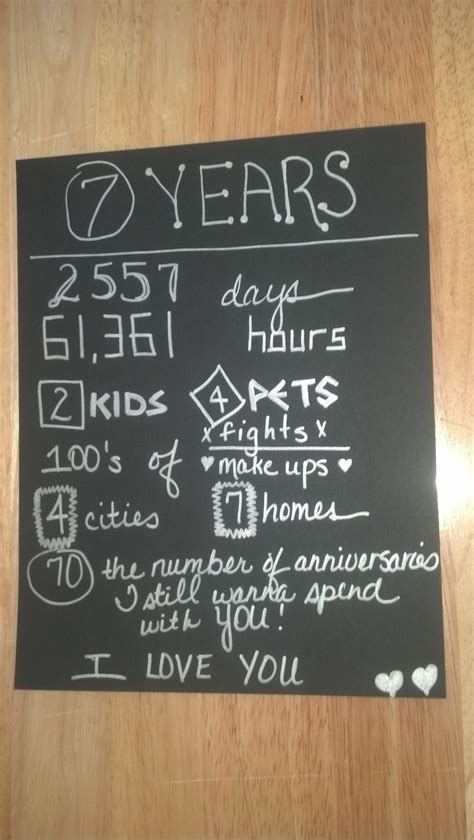 7 YEARS
2557 days
61,361 hours
2 KIDS 4 PETS
x fights x
100's of ♥ make ups ♥
4 cities 7 homes
70 the number of anniversaries
I still wanna spend
with YOU!
I LOVE YOU